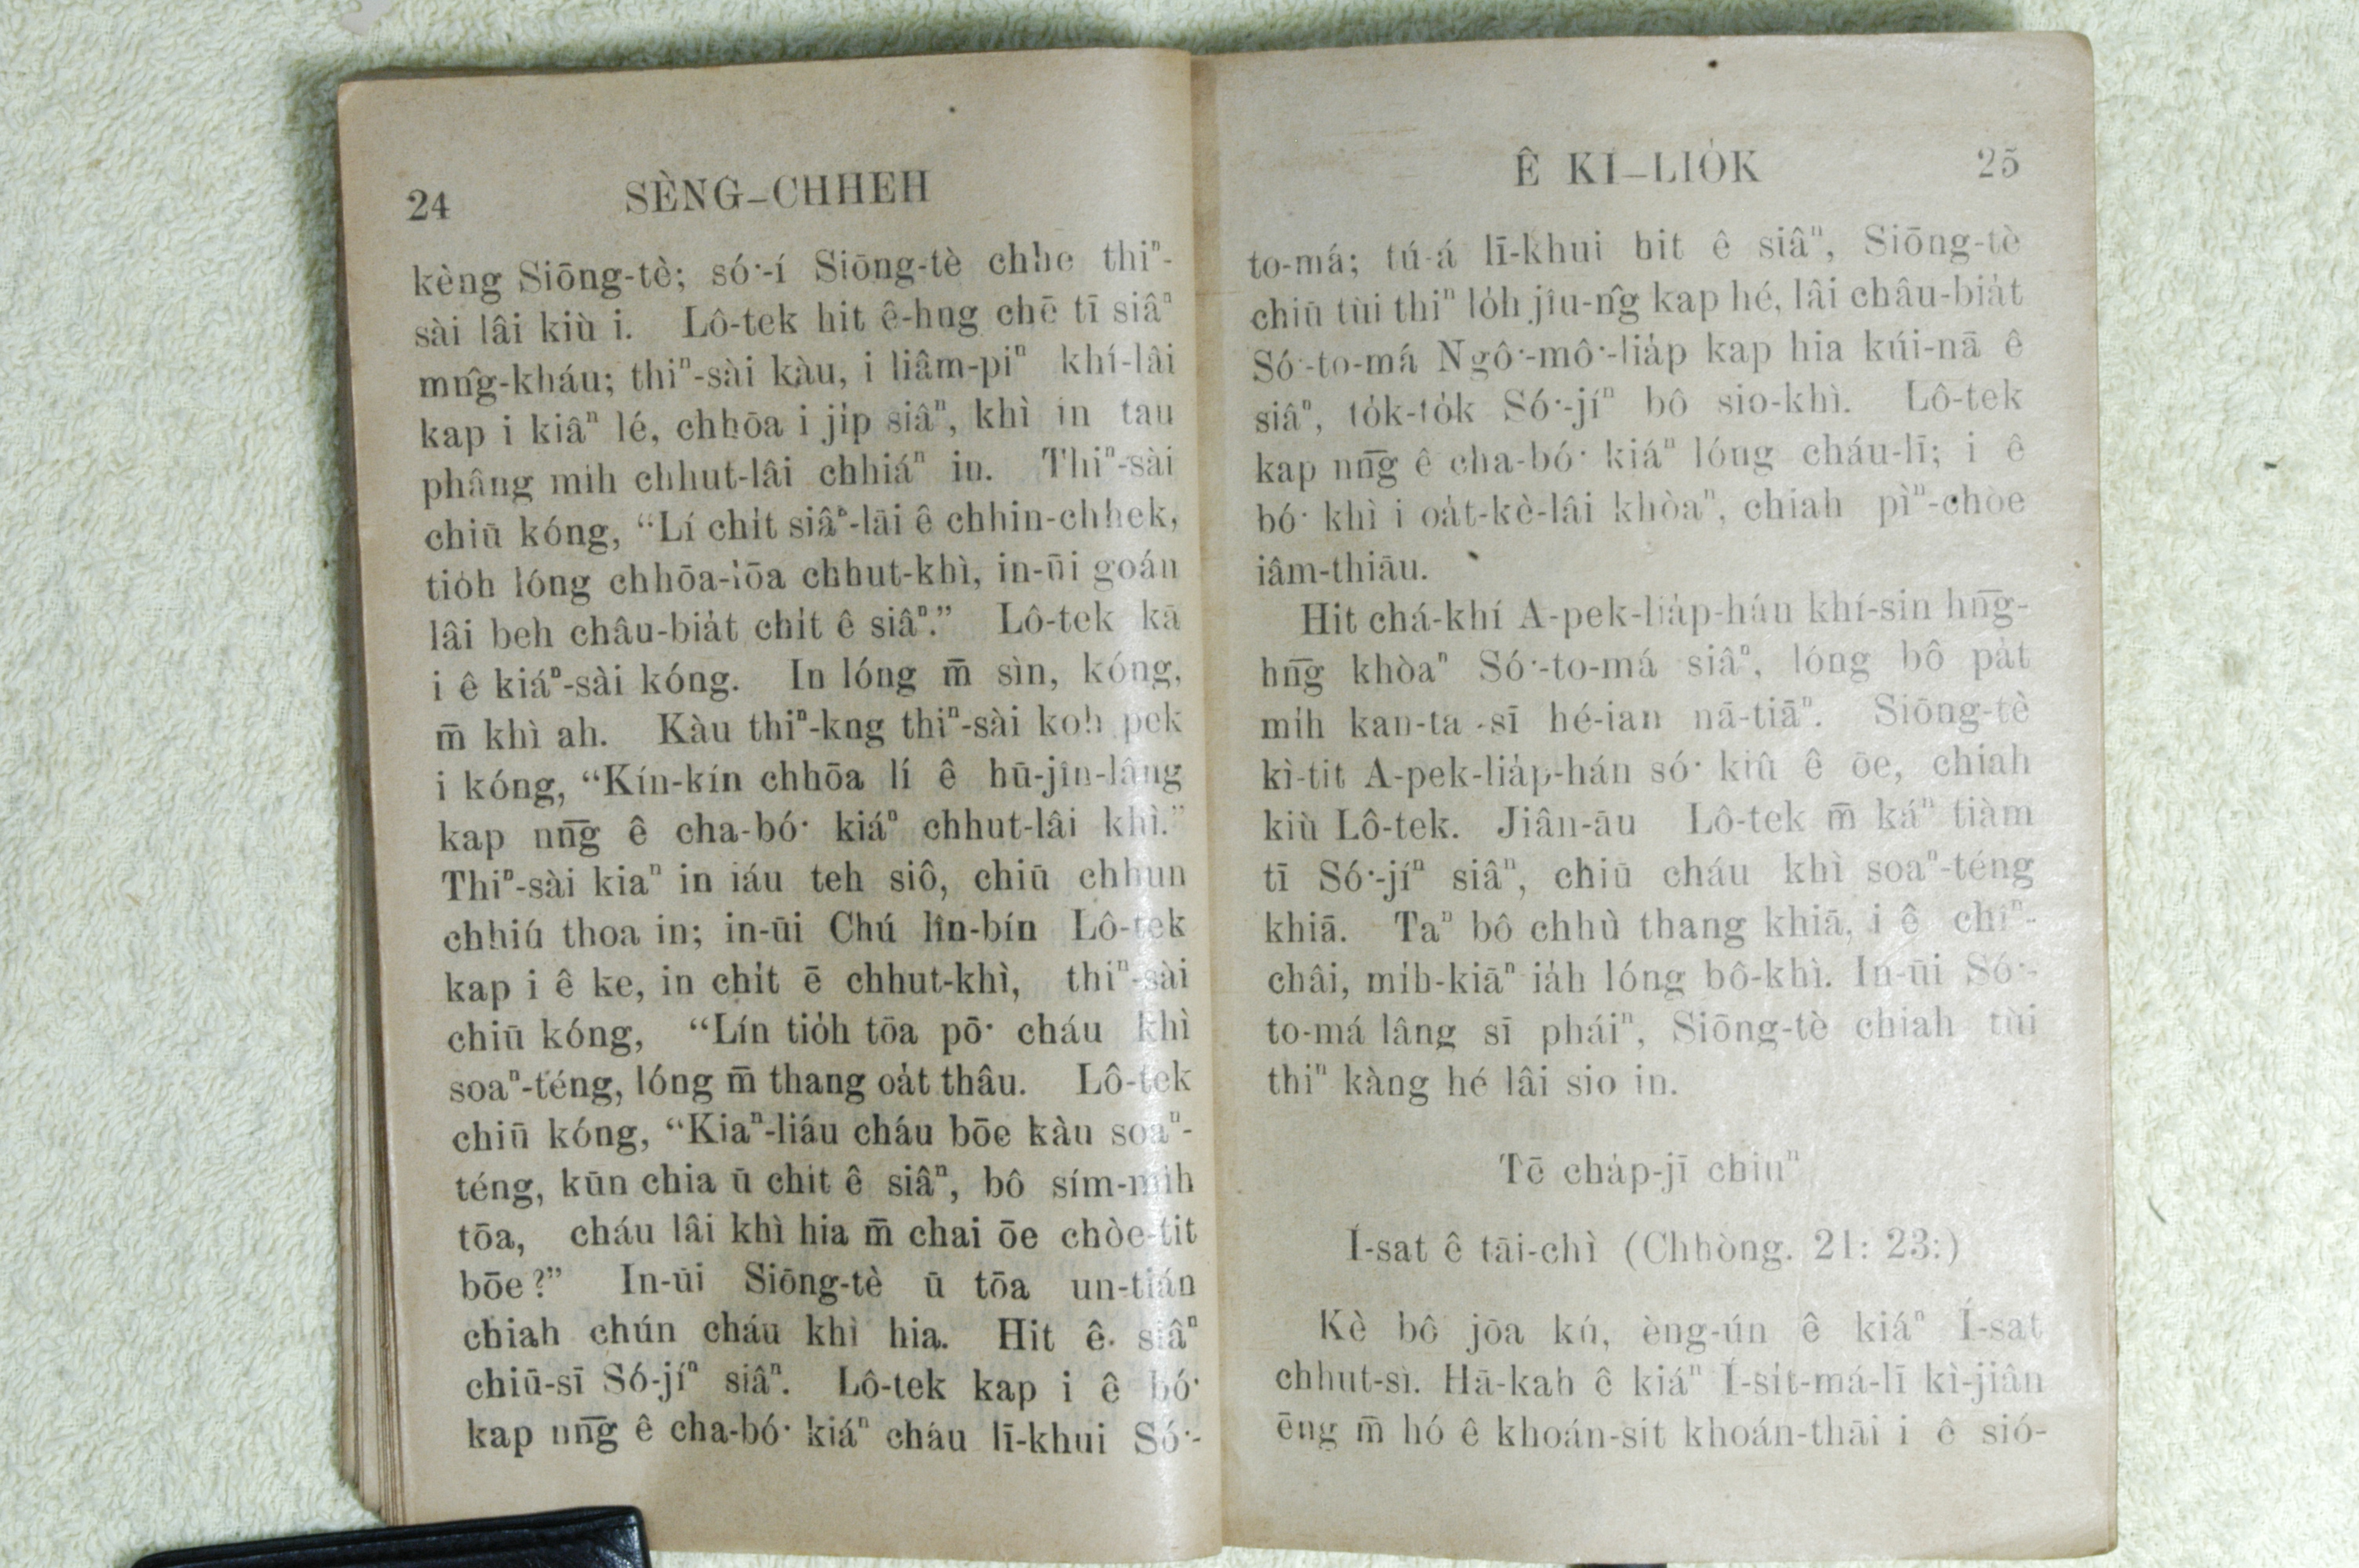 24 SÈNG–CHHEH
kèng Siōng-tè; só͘-í Siōng-tè chhe thiⁿ-
sài lâi kiù i. Lô-tek hit ê-hng chē tī siâⁿ
mn̂g-kháu; thiⁿ-sài kàu, i liâm-piⁿ khí-lâi
kap i kiâⁿ lé, chhōa i ji̍p siâⁿ, khì in tau
phâng mih chhut-lâi chhiáⁿ in. Thiⁿ-sài
chiū kóng, “Lí chi̍t siâⁿ-lāi ê chhin-chhek,
tio̍h lóng chhōa-lōa chhut-khì, in-ūi goán
lâi beh châu-bia̍t chi̍t ê siâⁿ.” Lô-tek kā
i ê kiáⁿ-sài kóng. In lóng m̄ sìn, kóng,
m̄ khì ah. Kàu thiⁿ-kng thiⁿ-sài koh pek
i kóng, “Kín-kín chhōa lí ê hū-jîn-lâng
kap nn̄g ê cha-bó͘ kiáⁿ chhut-lâi khì.”
Thiⁿ-sài kiaⁿ in iáu teh siô, chiū chhun
chhiú thoa in; in-ūi Chú lîn-bín Lô-tek
kap i ê ke, in chi̍t ē chhut-khì, thiⁿ-sài
chiū kóng, “Lín tio̍h tōa pō͘ cháu khì
soaⁿ-téng, lóng m̄ thang oa̍t thâu. Lô-tek
chiū kóng, “Kiaⁿ-liáu cháu bōe kàu soaⁿ-
téng, kūn chia ū chit ê siâⁿ, bô sím-mih
tōa, cháu lâi khì hia m̄ chai ōe chòe-tit
bōe?” In-ūi Siōng-tè ū tōa un-tián
chiah chún cháu khì hia. Hit ê siâⁿ
chiū-sī Só-jíⁿ siâⁿ. Lô-tek kap i ê bó͘
kap nn̄g ê cha-bó͘ kiáⁿ cháu lī-khui Só͘-
Ê KÌ–LIO̍K 25
to-má; tú-á lī-khui hit ê siâⁿ, Siōng-tè
chiū tùi thiⁿ lo̍h jîu-n̂g kap hé, lâi châu-bia̍t
Só͘-to-má Ngô͘-mô͘-lia̍p kap hia kúi-nā ê
siâⁿ, to̍k-to̍k Só͘-jíⁿ bô sio-khì. Lô-tek
kap nn̄g ê cha-bó͘ kiáⁿ lóng cháu-lī; i ê
bó͘ khì i oa̍t-kè-lâi khòaⁿ, chiah pìⁿ-chòe
iâm-thiāu.
Hit chá-khí A-pek-lia̍p-hán khí-sin hn̄g-
hn̄g khòaⁿ Só͘-to-má siâⁿ, lóng bô pa̍t
mi̍h kan-ta sī hé-ian nā-tiāⁿ. Siōng-tè
kì-tit A-pek-lia̍p-hán só͘ kiû ê ōe, chiah
kiù Lô-tek. Jiân-āu Lô-tek m̄ káⁿ tiàm
tī Só͘-jíⁿ siâⁿ, chiū cháu khì soaⁿ-téng
khiā. Taⁿ bô chhù thang khiā, i ê chîⁿ-
châi, mi̍h-kiāⁿ ia̍h lóng bô-khì. In-ūi Só͘-
to-má lâng sī pháiⁿ, Siōng-tè chiah tùi
thiⁿ kàng hé lâi sio in.
Tē cha̍p-jī chiuⁿ
Í-sat ê tāi-chì (Chhòng. 21: 23:)
Kè bô jōa kú, èng-ún ê kiáⁿ Í-sat
chhut-sì. Hā-kah ê kiáⁿ Í-si̍t-má-lī kì-jiân
ēng m̄ hó ê khoán-sit khoán-thāi i ê sió-